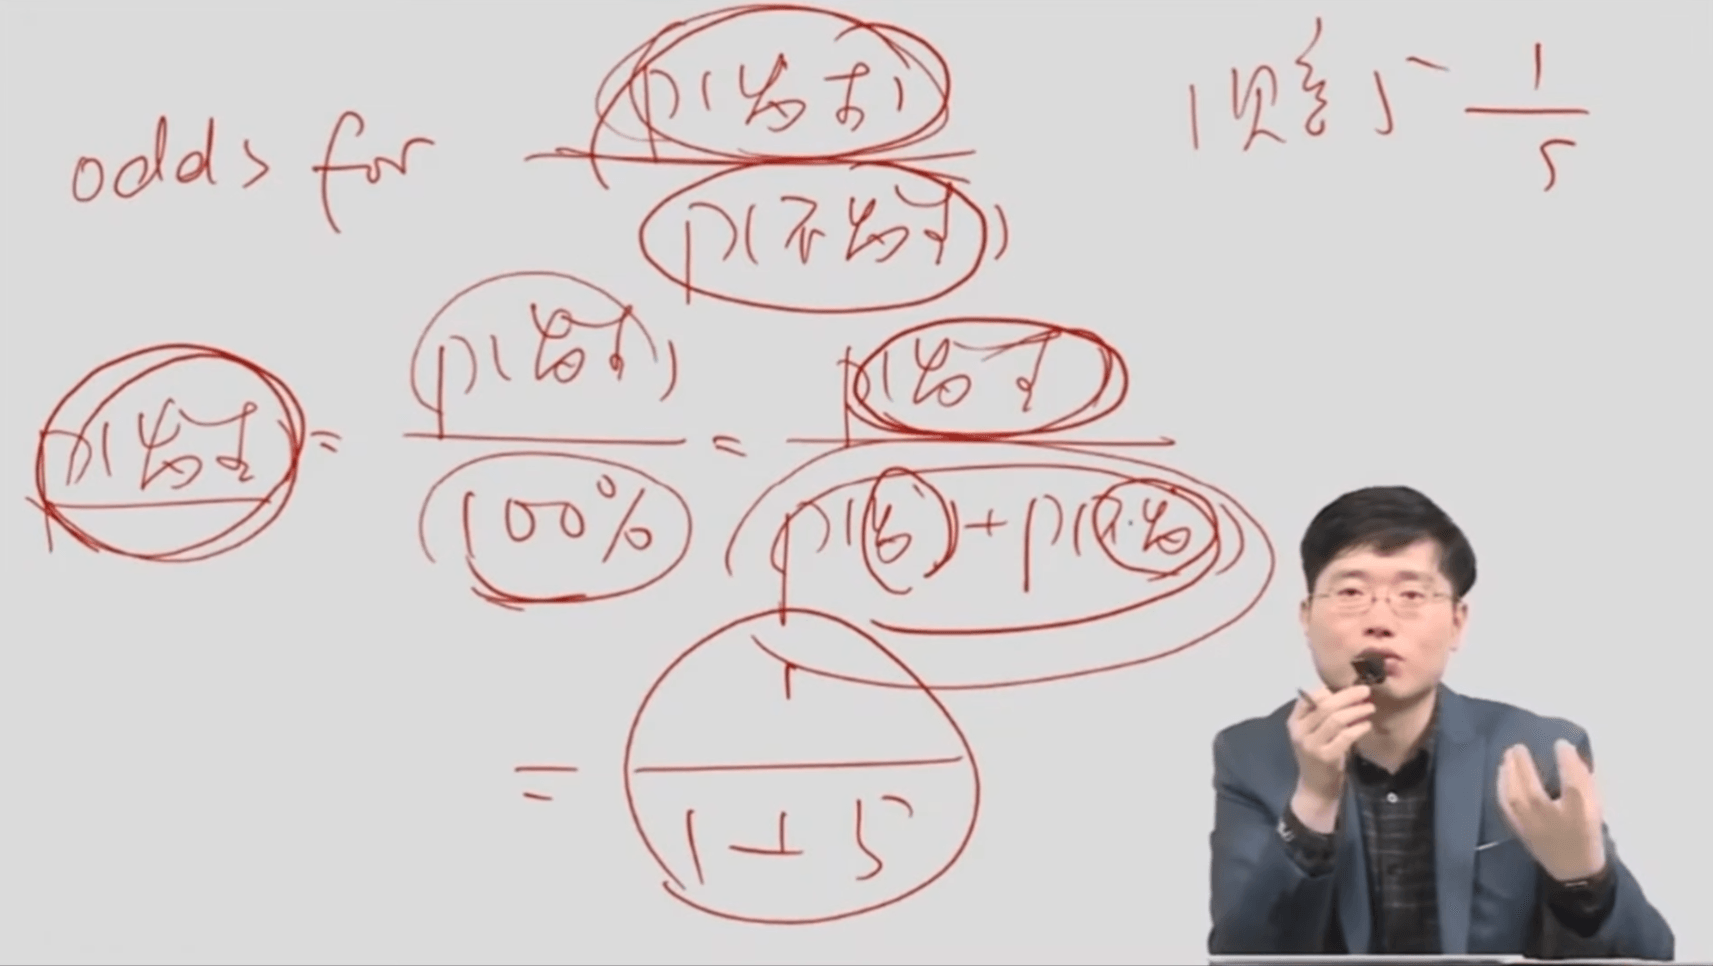 odds for P(发生) / P(不发生)
1赔5 1/5
P(发生 = P(发生) / 100% = P(发生) / P(发)+P(不发)
= 1 / 1+5